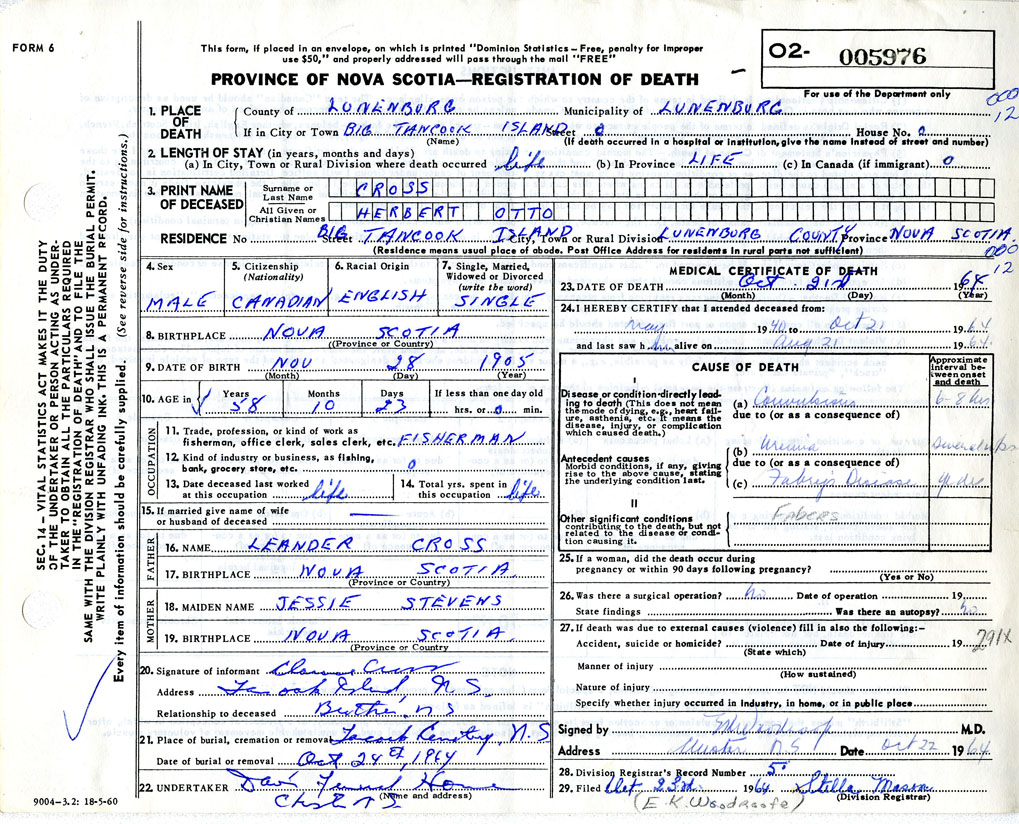 FORM 6
This form, if placed in an envelope, on which is printed "Dominion Statistics – Free, penalty for improper
use $50," and properly addressed will pass through the mail "FREE"
O2- 005976
PROVINCE OF NOVA SCOTIA—REGISTRATION OF DEATH
For use of the Department only
000
12
1. PLACE OF DEATH County of LUNENBURG Municipality of LUNENBURG
If in City or Town BIG TANCOOK ISLAND Street 0 House No. 0
(Name) (If death occurred in a hospital or institution, give the name instead of street and number)
2. LENGTH OF STAY (in years, months and days)
(a) In City, Town or Rural Division where death occurred life (b) In Province LIFE (c) In Canada (if immigrant) 0
3. PRINT NAME OF DECEASED Surname or Last Name CROSS
All Given or Christian Names HERBERT OTTO
RESIDENCE No Street BIG TANCOOK ISLAND City, Town or Rural Division LUNENBURG COUNTY Province NOVA SCOTIA
(Residence means usual place of abode. Post Office Address for residents in rural parts not sufficient)
000
12
4. Sex MALE
5. Citizenship (Nationality) CANADIAN
6. Racial Origin ENGLISH
7. Single, Married, Widowed or Divorced (write the word) SINGLE
8. BIRTHPLACE NOVA SCOTIA
(Province or Country)
9. DATE OF BIRTH NOV 28 1905
(Month) (Day) (Year)
10. AGE in Years 58 Months 10 Days 23 If less than one day old hrs. or 0 min.
OCCUPATION
11. Trade, profession or kind of work as
fisherman, office clerk, sales clerk, etc. FISHERMAN
12. Kind of industry or business, as fishing,
bank, grocery store, etc. 0
13. Date deceased last worked at this occupation life
14. Total yrs. spent in this occupation life
15. If married give name of wife
or husband of deceased
FATHER
16. NAME LEANDER CROSS
17. BIRTHPLACE NOVA SCOTIA
(Province or Country)
MOTHER
18. MAIDEN NAME JESSIE STEVENS
19. BIRTHPLACE NOVA SCOTIA
(Province or Country)
20. Signature of informant Cross
Address Island, N.S.
Relationship to deceased N S
21. Place of burial, cremation or removal N.S
Date of burial or removal Oct 24th, 1964
22. UNDERTAKER Funeral Home
(Name and address)
9004-3.2: 18-5-60
MEDICAL CERTIFICATE OF DEATH
23. DATE OF DEATH Oct. 21st 1964
(Month) (Day) (Year)
24. I HEREBY CERTIFY that I attended deceased from:
May 1940 to Oct 21 1964
and last saw him alive on Aug 21 1964.
CAUSE OF DEATH
Approximate interval between onset and death
I
Disease or condition directly leading to death (This does not mean the mode of dying, e.g., heart failure, asthenia, etc. It means the disease, injury, or complication which caused death.)
(a) Convulsions 6-8 hrs
due to (or as a consequence of)
Antecedent causes
Morbid conditions, if any, giving rise to the above cause, stating the underlying condition last.
(b) Uremia several wks
due to (or as a consequence of)
(c) Fabry's Disease
II
FABERS
Other significant conditions
contributing to the death, but not related to the disease or condition causing it.
25. If a woman, did the death occur during
pregnancy or within 90 days following pregnancy?
(Yes or No)
26. Was there a surgical operation? no Date of operation 19
State findings Was there an autopsy? no
27. If death was due to external causes (violence) fill in also the following:–
Accident, suicide or homicide? Date of injury 19
(State which)
Manner of injury
(How sustained)
Nature of injury
Specify whether injury occurred in industry, in home, or in public place
Signed by M.D.
Address Chester N.S Date Oct 22 1964
28. Division Registrar's Record Number 5
29. Filed Oct 23rd. 1964 Stella Mason
(Division Registrar)
(E.K. Woodroofe)
SEC. 14 – VITAL STATISTICS ACT MAKES IT THE DUTY
OF THE UNDERTAKER OR PERSON ACTING AS UNDER-
TAKER TO OBTAIN ALL THE PARTICULARS REQUIRED
IN THE "REGISTRATION OF DEATH" AND TO FILE THE
SAME WITH THE DIVISION REGISTRAR WHO SHALL ISSUE THE BURIAL PERMIT.
WRITE PLAINLY WITH UNFADING INK. THIS IS A PERMANENT RECORD.
Every item of information should be carefully supplied. (See reverse side for instructions.)